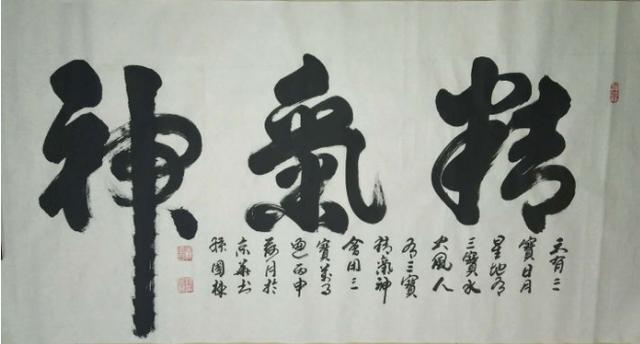 精氣神
天有三
寶日月
星地有
三寶水
火風人
有三寶
精氣神
會用三
寶萬事
通丙申
荷月於
京華書
孫國棟